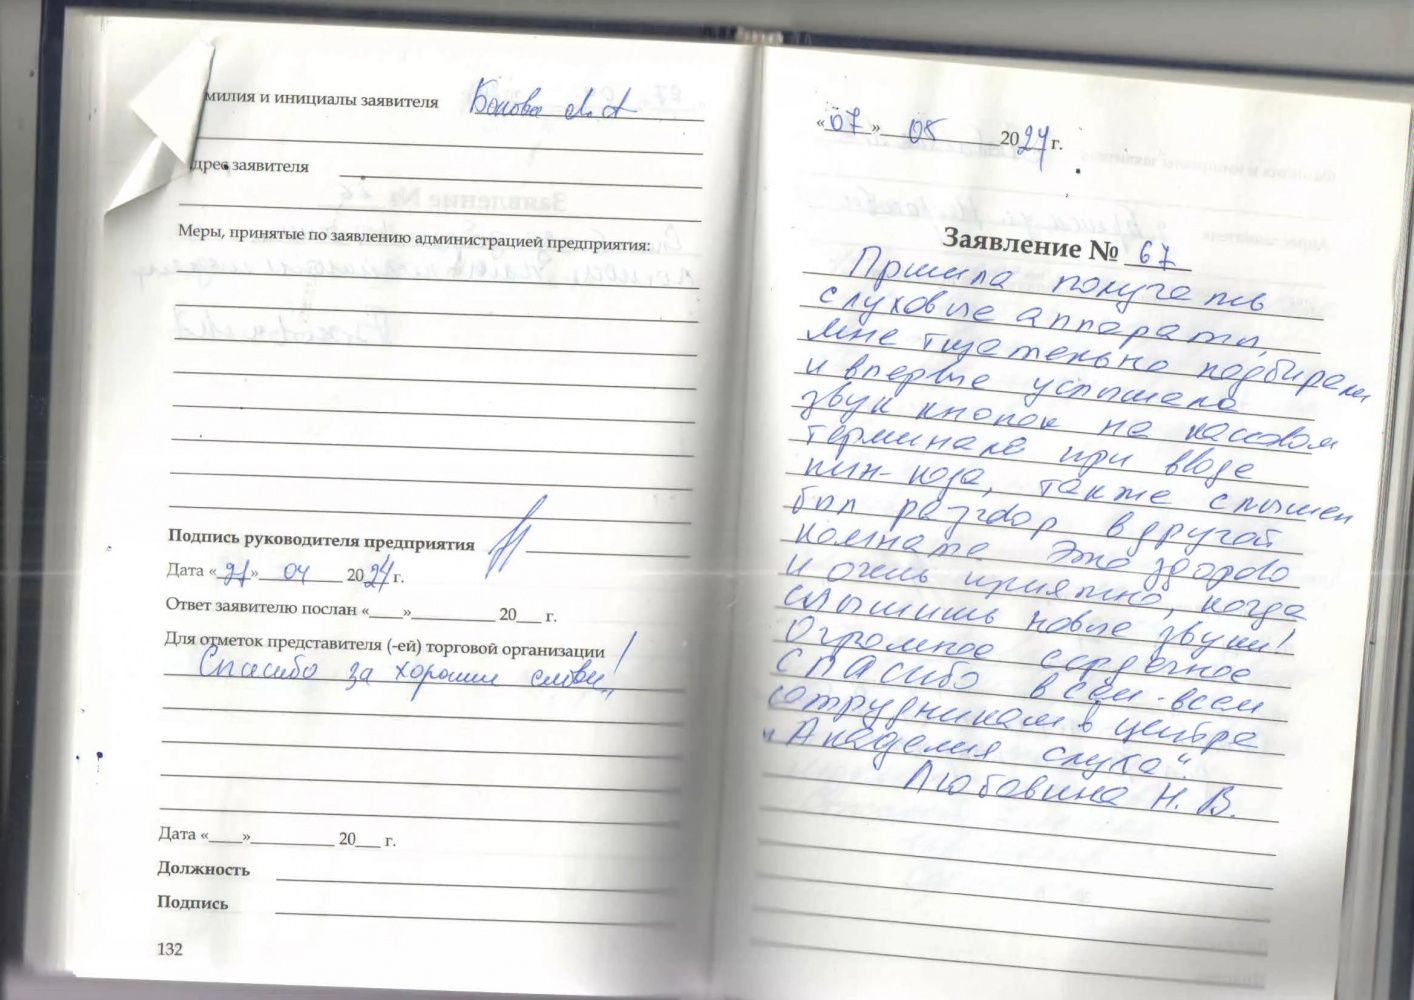 милия и инициалы заявителя Бокова Л. А
дрес заявителя
Меры, принятые по заявлению администрацией предприятия:
Подпись руководителя предприятия
Дата «27» 04 2024 г.
Ответ заявителю послан «___»__________ 20___ г.
Для отметок представителя (-ей) торговой организации
Спасибо за хорошие слова!
Дата «____»__________ 20___ г.
Должность
Подпись
132
«07» 05 2024 г.
Заявление № 67
Пришла получать
слуховые аппараты,
мне тщательно подбирали
и впервые услышала
звук кнопок на кассовом
терминале при вводе
пин-кода, также слышен
был разговор в другой
комнате Это здорово
и очень приятно, когда
слышишь новые звуки!
Огромное сердечное
спасибо всем-всем
сотрудникам в центре
"Академия слуха".
Любавина Н. В.